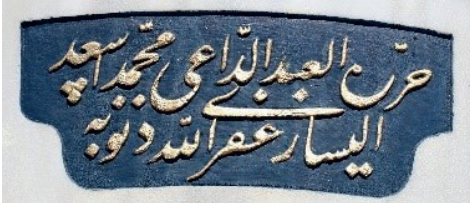 حرره العبد الداعی محمد اسعد
الیساری غفر الله ذنوبه